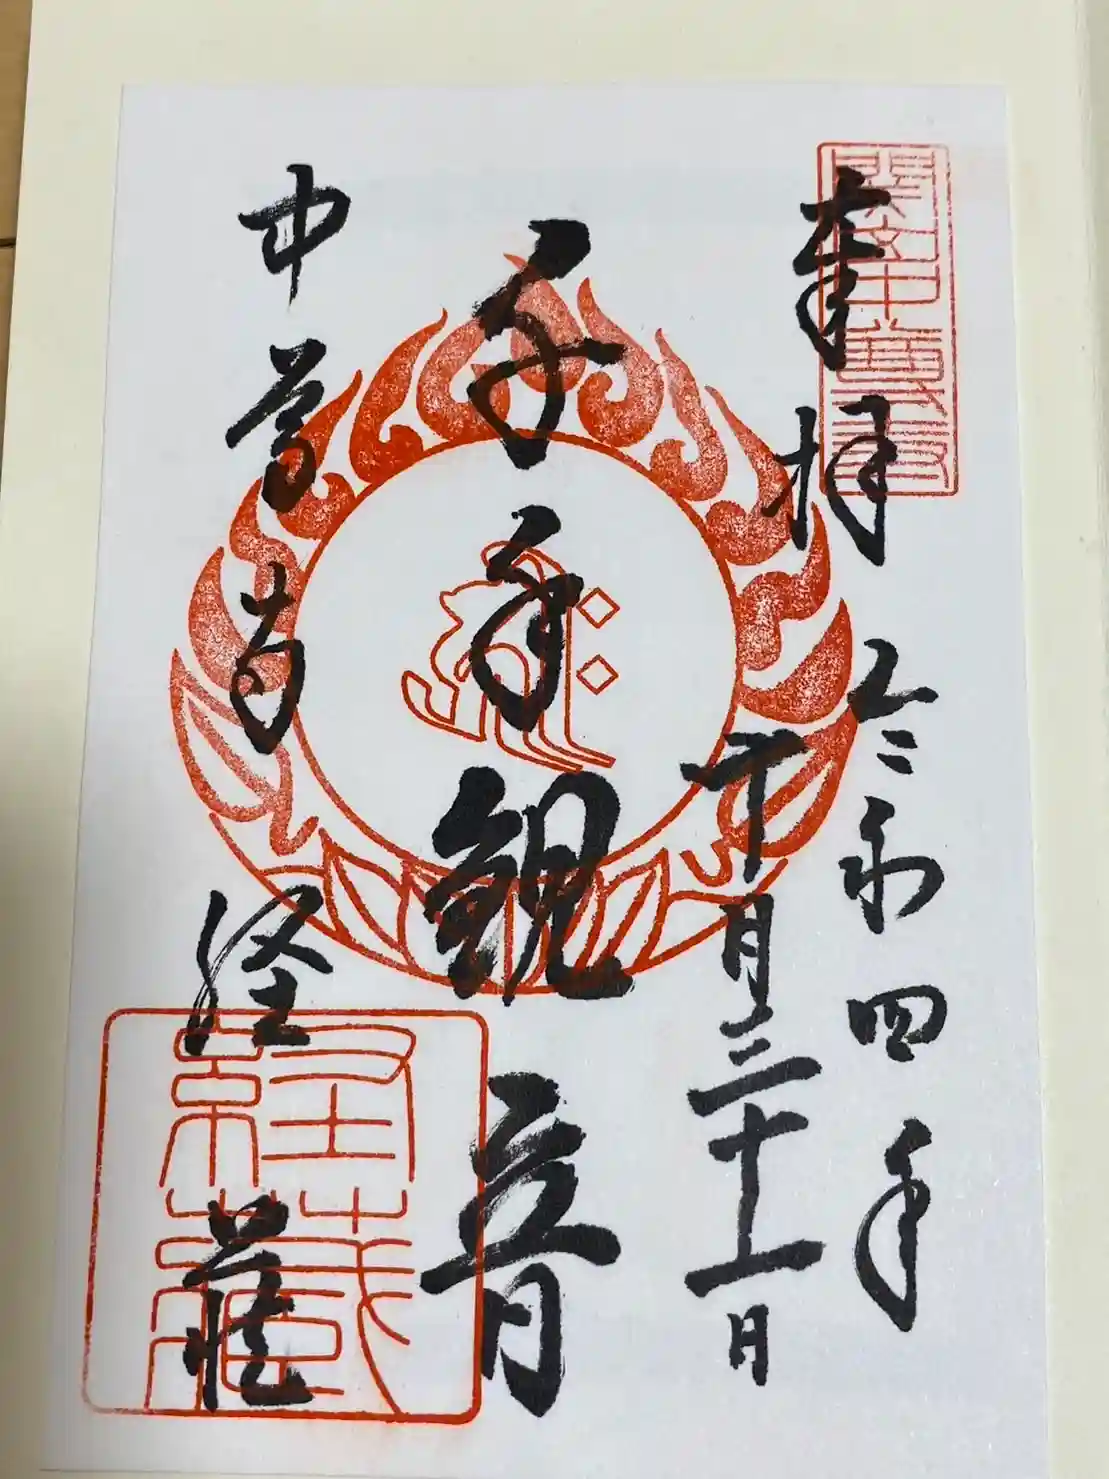 奉拝
令和四年
十月三十一日
千手観音
中尊寺
経蔵
経藏